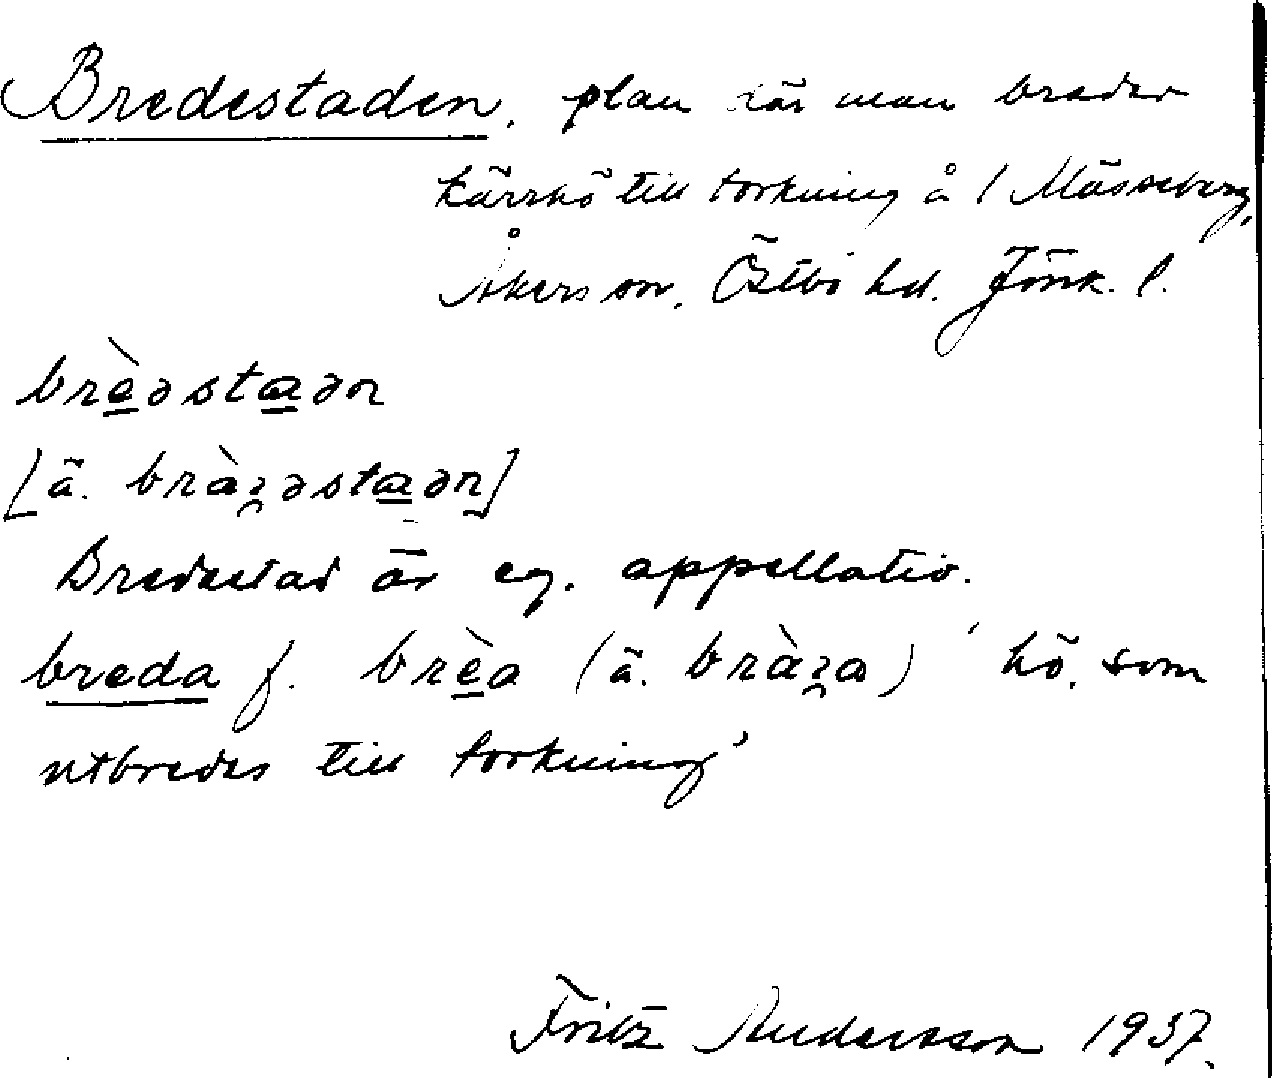 Bredestaden, plan där man breder
kärrhö till torkning å 1 Mässeberg,
Åkers sn, Östbo hd. Jönk. l.
brèəstaən
[ä. bràʒəstaən]
Bredestad är eg. appellativ.
breda f. brèa (ä. bràʒa) 'hö, som
utbredes till torkning'
Fritz Andersson 1937.